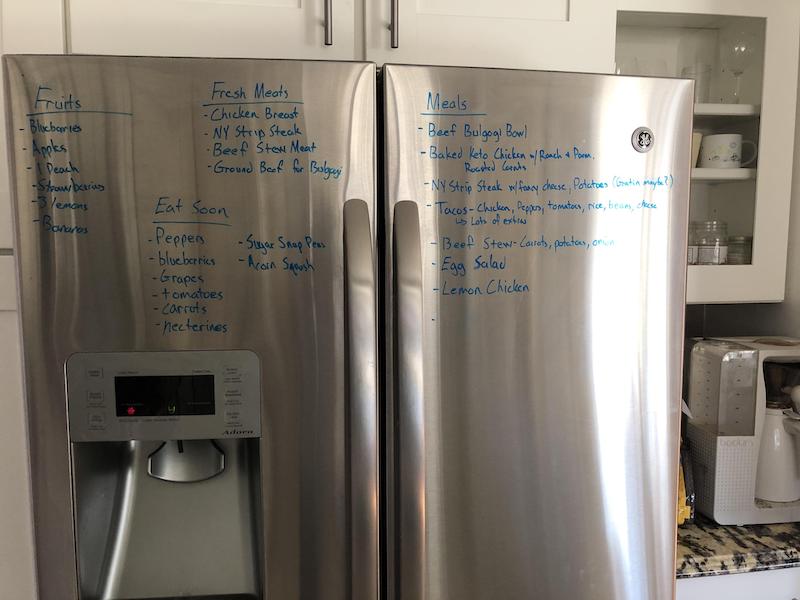 Fruits
- Blueberries
- Apples
- 1 Peach
- Strawberries
- 3 lemons
- Bananas
Fresh Meats
- Chicken Breast
- NY Strip Steak
- Beef Stew Meat
- Ground Beef for Bulgogi
Eat Soon
- Peppers
- blueberries
- Grapes
- tomatoes
- carrots
- necterines
- Sugar Snap Peas
- Acorn Squash
Meals
- Beef Bulgogi Bowl
- Baked Keto Chicken w/ Ranch & Parm.
Roasted Carrots
- NY Strip Steak w/ fancy cheese, Potatoes (Gratin maybe?)
- Tacos - Chicken, Peppers, tomatoes, rice, beans, cheese
↳ Lots of extras
- Beef Stew - Carrots, potatoes, onion
- Egg Salad
- Lemon Chicken
-
GE
Adora
bodum